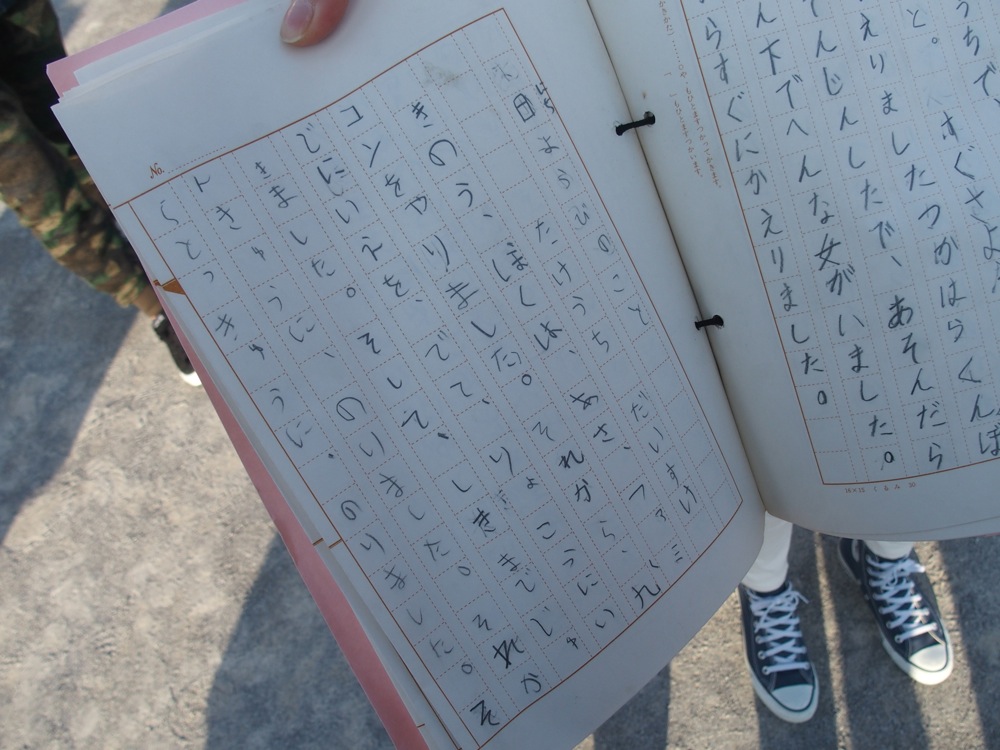 うちで、
と。 すぐさよ
えりましたつかはらくんは
てんじんしたで、あそんだら
ん下でへんな女がいました。
らすぐにかえりました。
日ようびのこと
たけうち だいすけ
きのう、ぼくは、あさ、ファミ
コンをやりました。それから、九
でにいえを、でて、りょこうにい
きました。そして、し きまでじ
きゅうに、のりました。それか
らとっきゅうに。のりました。そ
No.